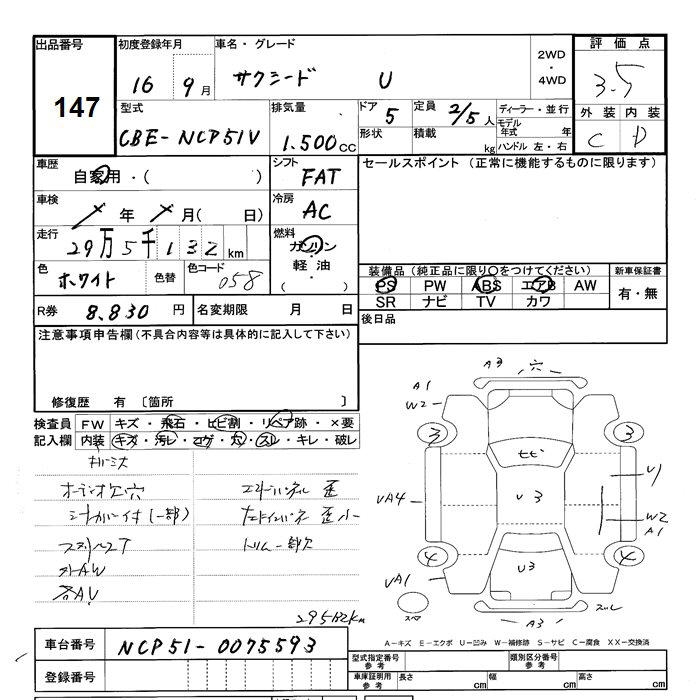 出品番号 初度登録年月 車名・グレード 2WD ・ 4WD 評価点
147 16年 9月 サクシード U 3.5
型式 排気量 ドア 5 定員 2/5人 ディーラー・並行 外装 内装
CBE-NCP51V 1.500cc 形状 積載 kg モデル年式 年 ハンドル 左・右 C D
車歴 自家用・( ) シフト FAT セールスポイント (正常に機能するものに限ります)
車検 年 月( 日) 冷房 AC
走行 29万5千132km 燃料 ガソリン
色 ホワイト 色替 色コード 058 軽油 ( ・ )
装備品 (純正品に限り○をつけてください) 新車保証書
PS PW ABS エアB AW 有・無
SR ナビ TV カワ
R券 8,830円 名変期限 月 日 後日品
注意事項申告欄 (不具合内容等は具体的に記入して下さい)
修復歴 有 〔箇所 〕
検査員 FW キズ・飛石・ヒビ割・リペア跡・×要
記入欄 内装 キズ・汚レ・コゲ・穴・スレ・キレ・破レ
オーディオ穴 エンドパネル 歪
シートカバー付(一部)
トリム一部欠
外AW
A3 穴
A1
W2
3 3
ヒビ
U3
UA4
U1
W2
A1
4 4
UA1
U3
スペア
A3
スレ
A-キズ E-エクボ U-凹み W-補修跡 S-サビ C-腐食 XX-交換済
車台番号 NCP51-0075593 型式指定番号 参考 類別区分番号 参考
登録番号 車庫証明用 参考 長さ cm 幅 cm 高さ cm